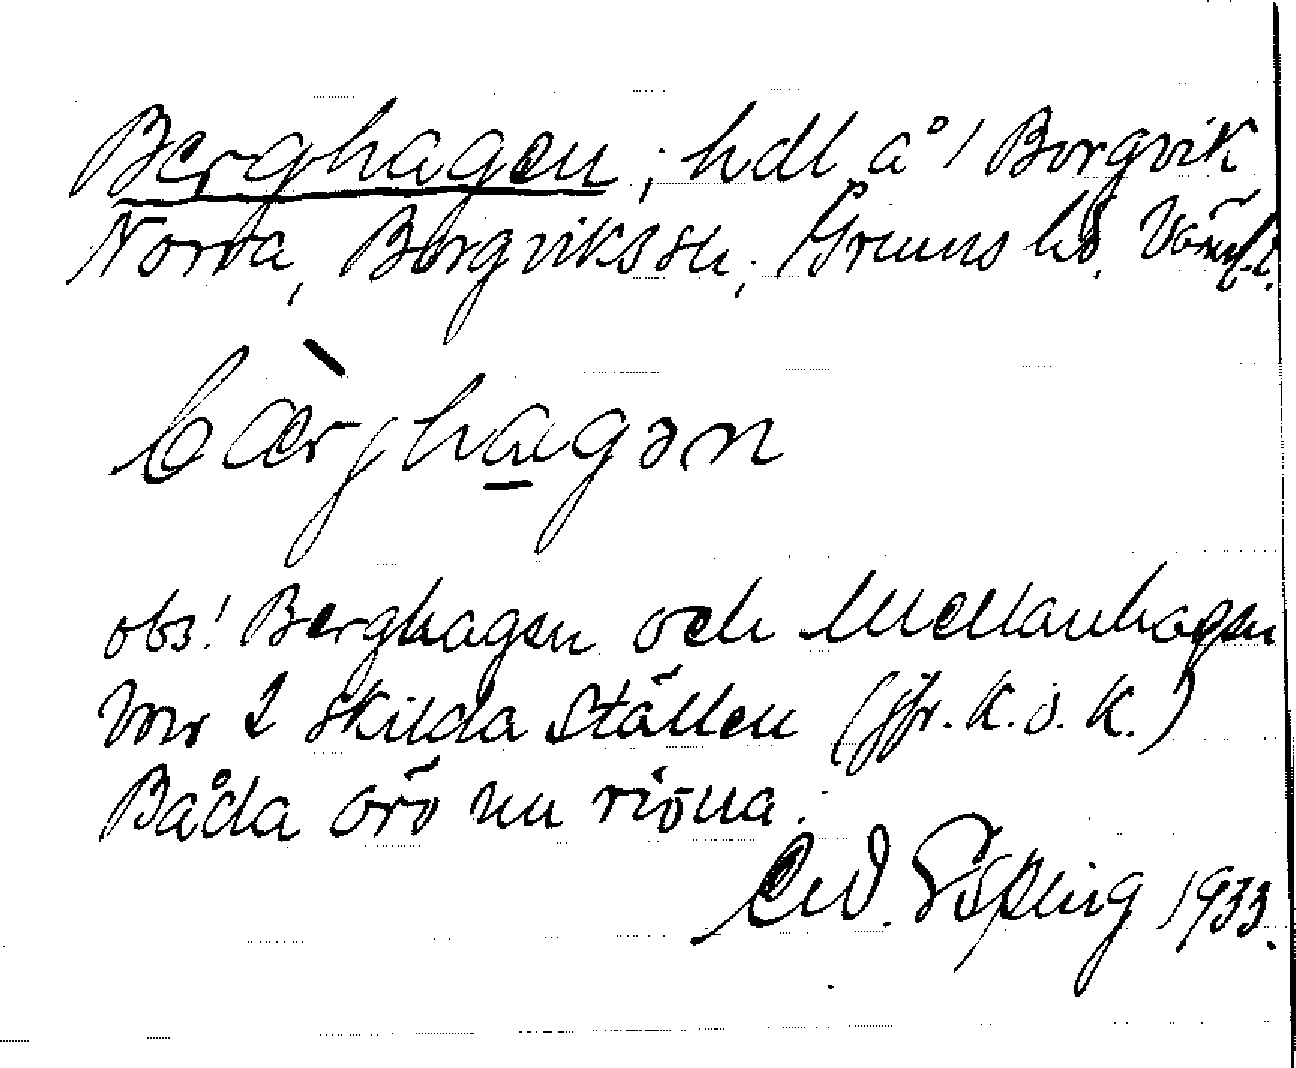 Berghagen; hdl. å 1 Borgvik
Norra, Borgviks sn; Grums hd. Värml.
bæ̀rjhagən
obs! Berghagen och Mellanhagen
voro 2 skilda ställen (jfr. K. o. K.)
Båda äro nu rivna.
Espling 1933.